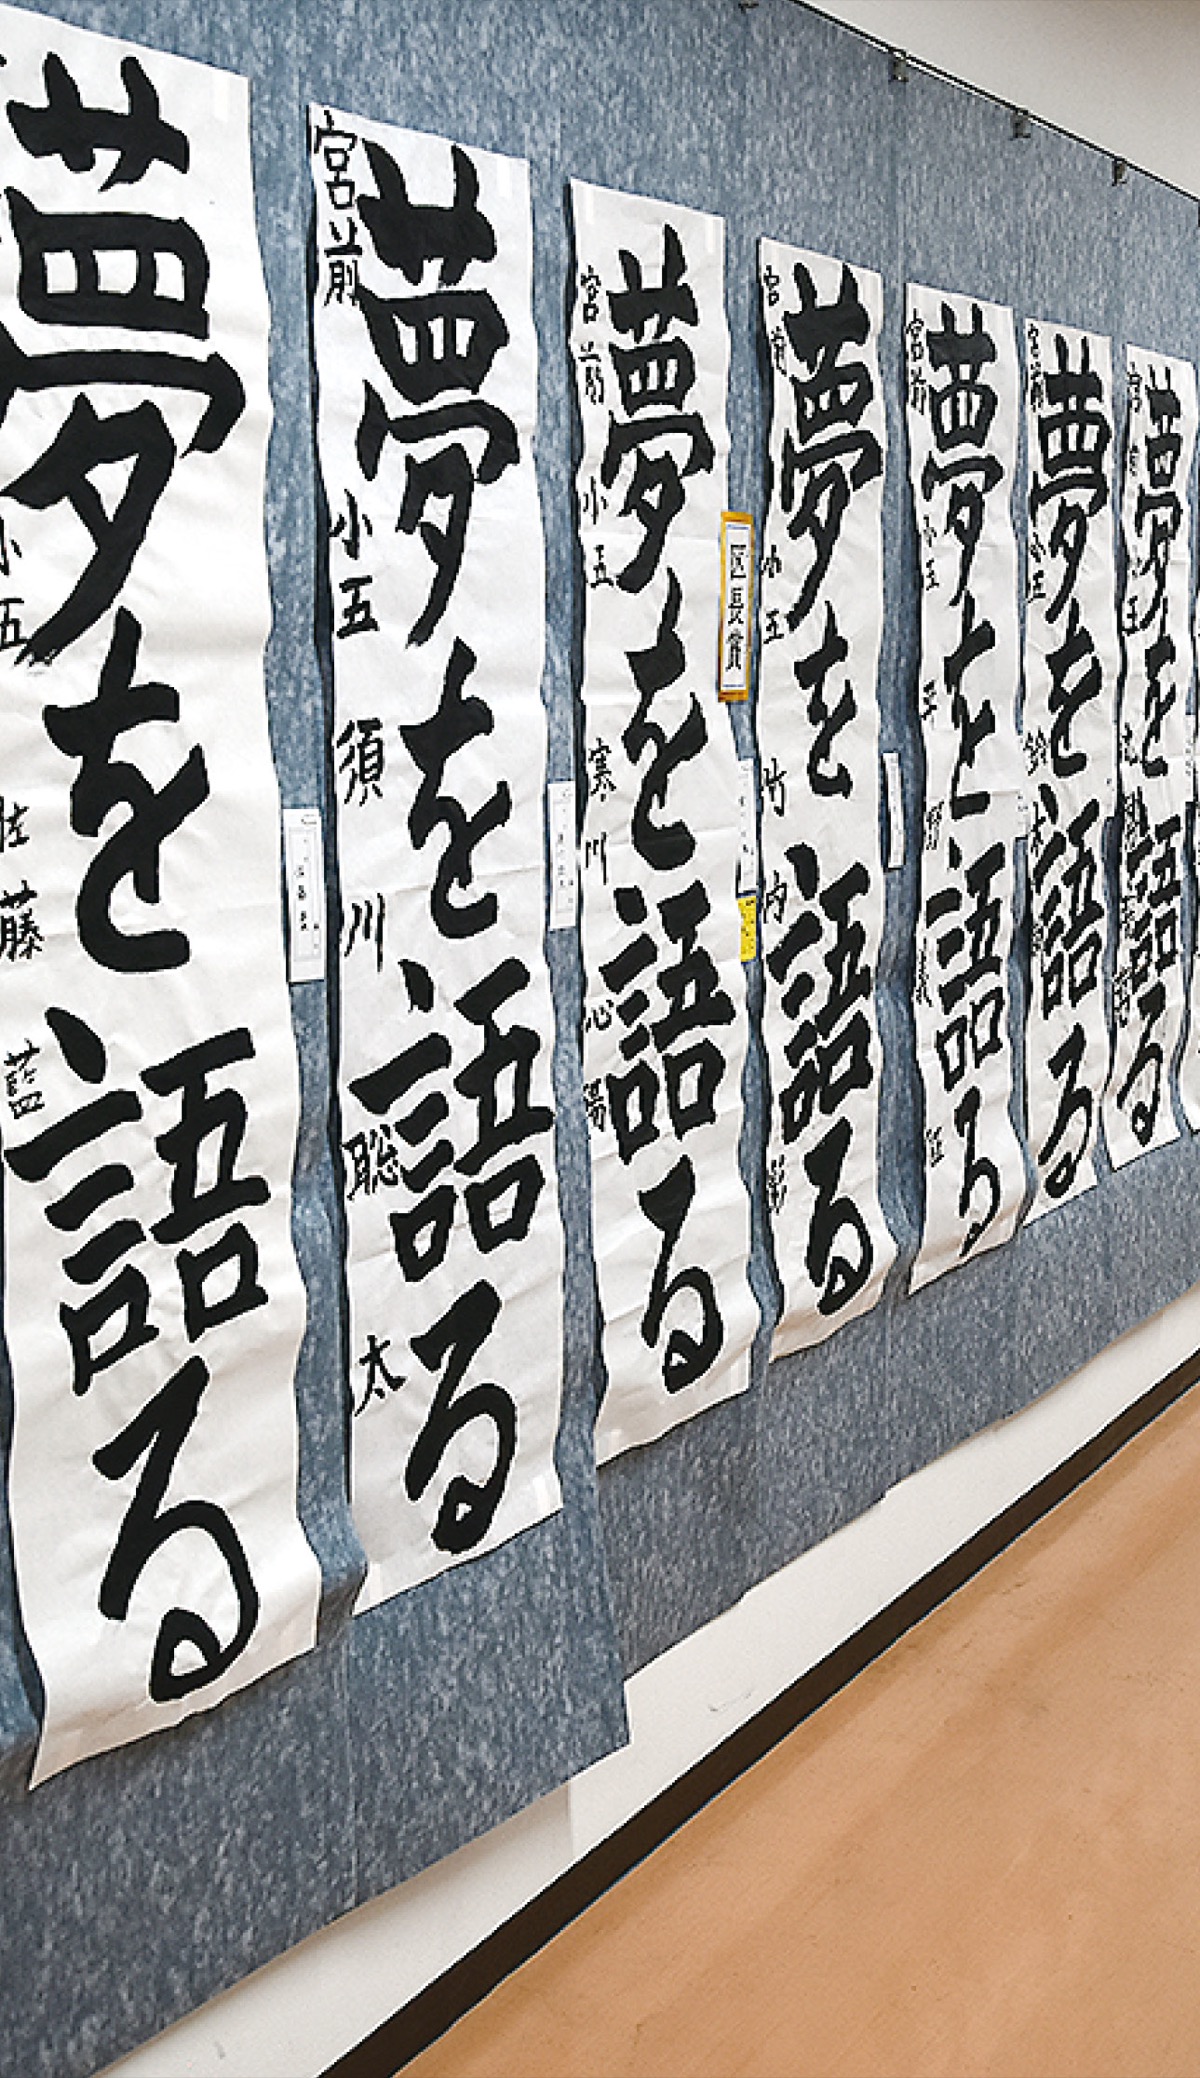 夢を語る
小五 佐藤 藍
夢を語る
宮前 小五 須川 聡太
夢を語る
宮前 小五 寒川 心陽
区長賞
夢を語る
宮前 小五 竹内
夢を語る
宮前 小五 平野
夢を語る
宮前 小五 鈴木
夢を語る
宮前 小五